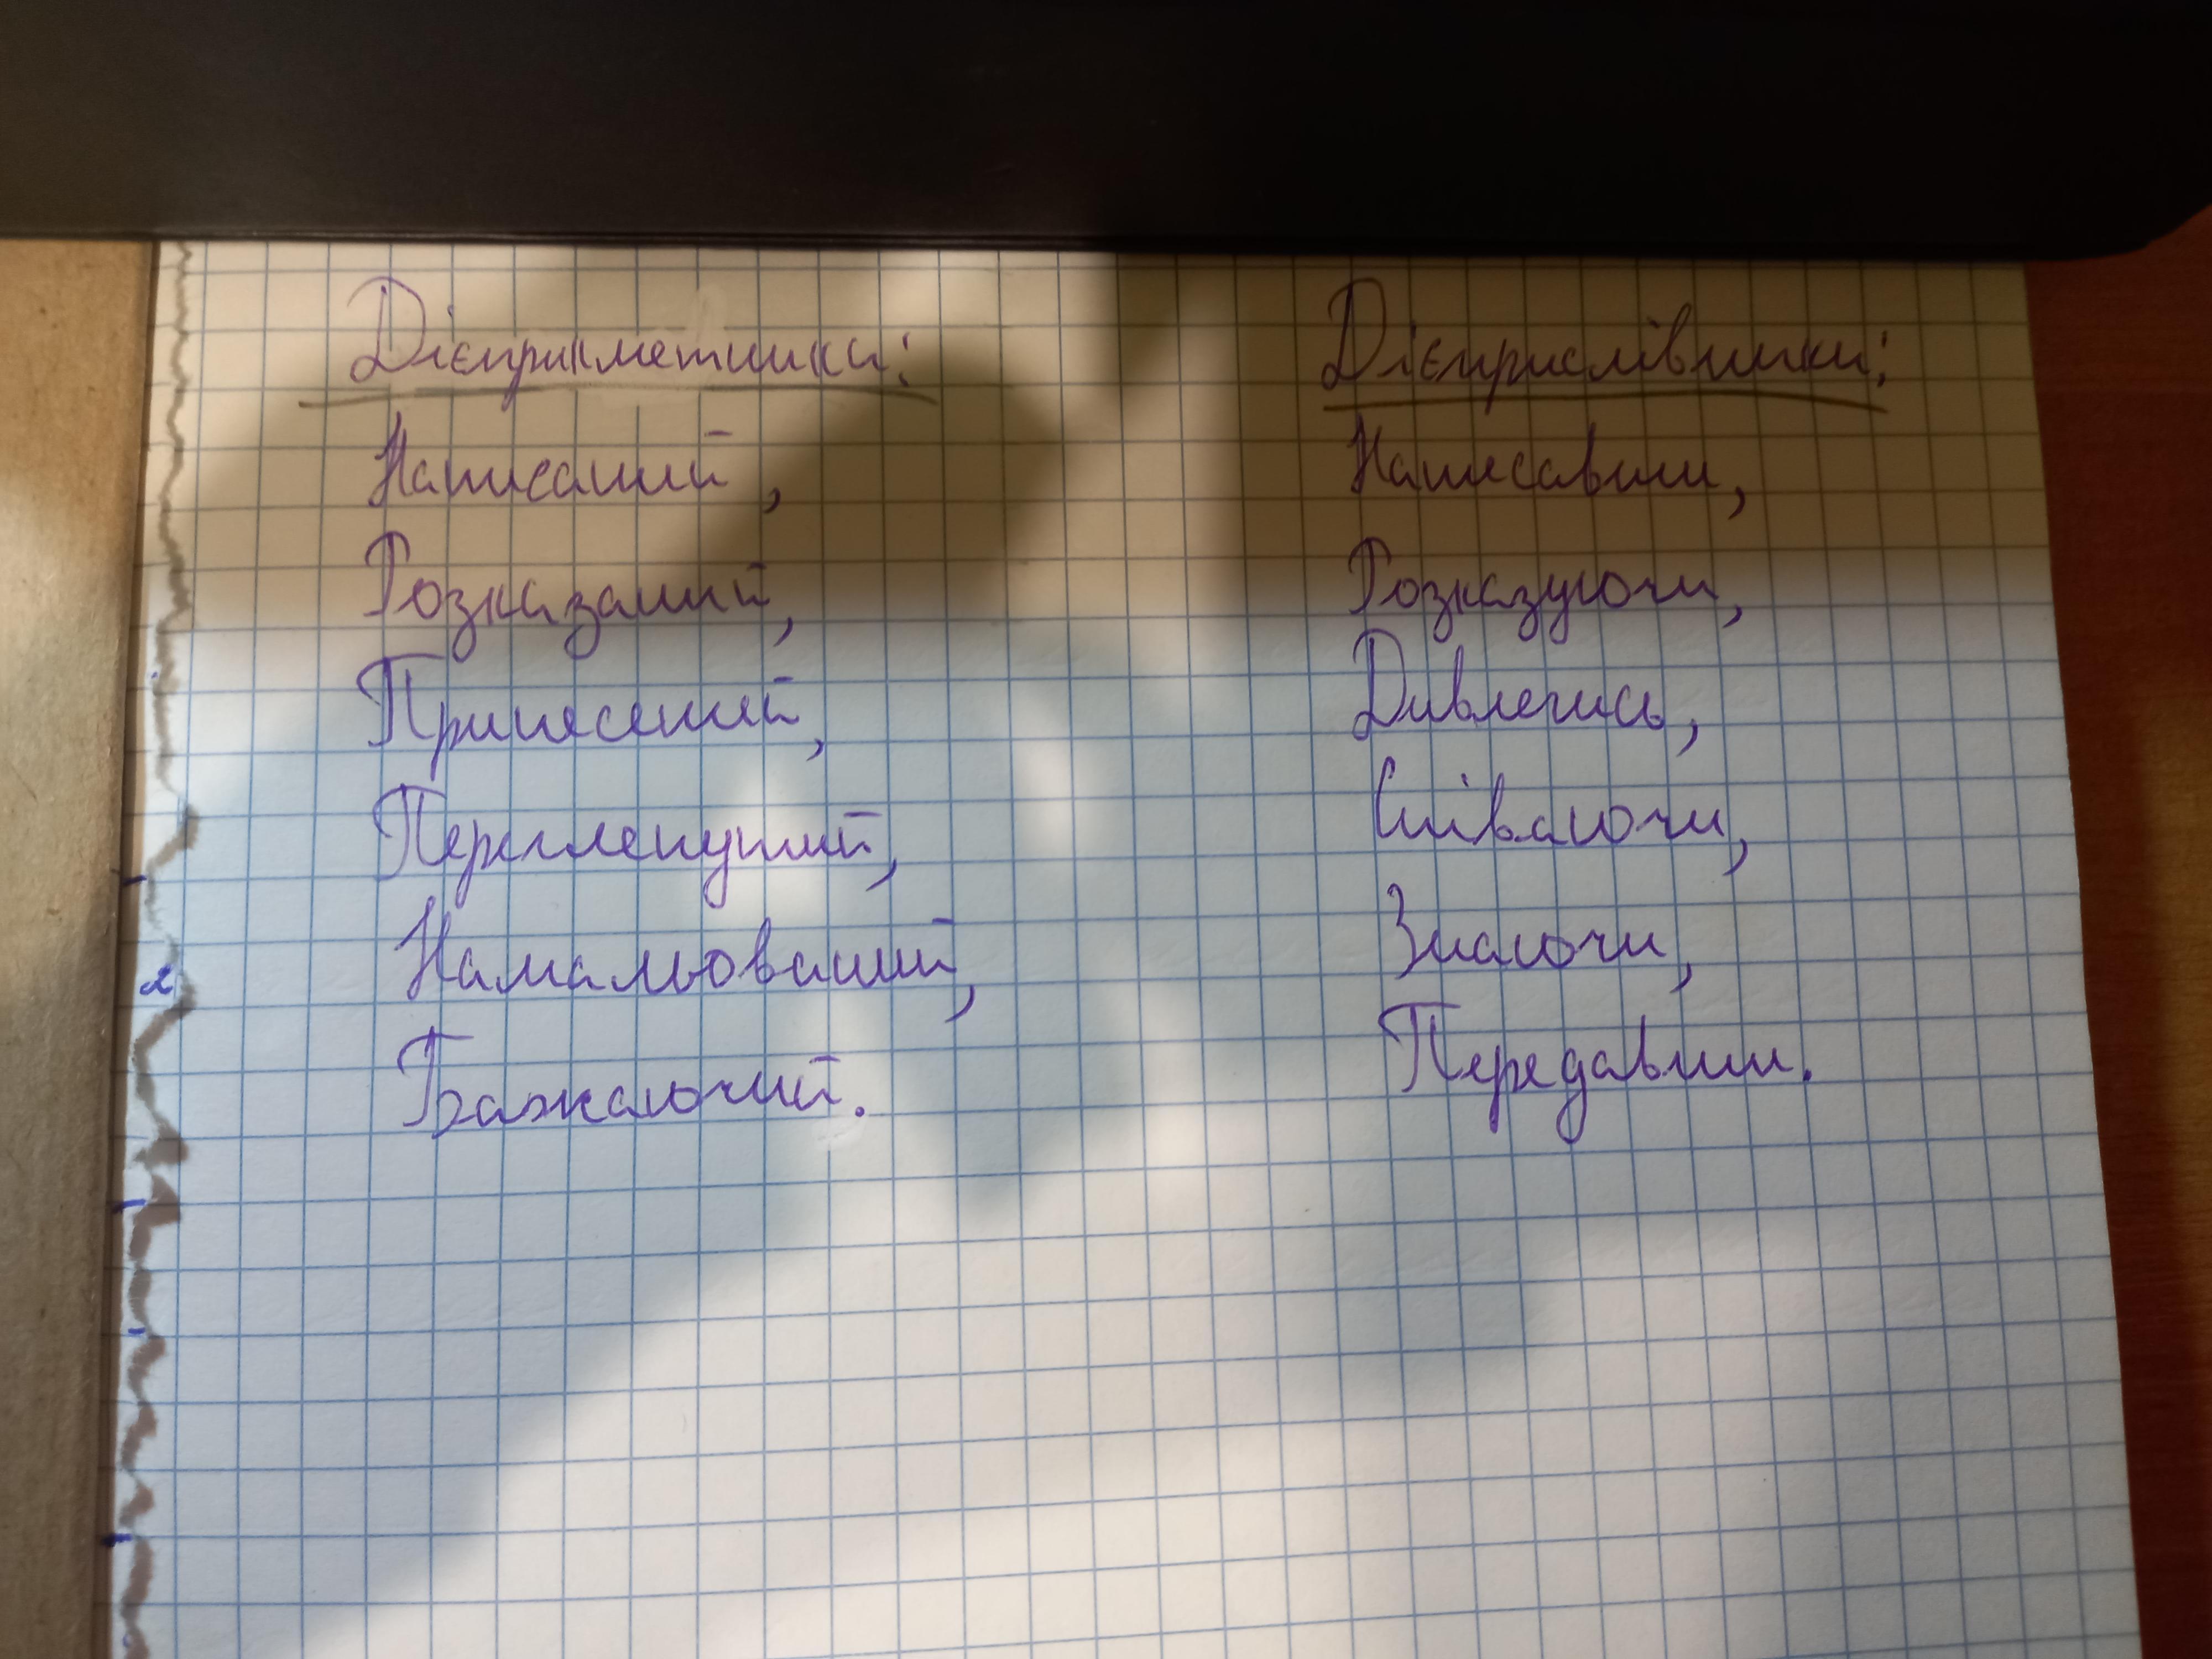 Дієприкметники:
Написаний,
Розказаний,
Принесений,
Переглянутий,
Намальований,
Бажаючий.
Дієприслівники:
Написавши,
Розказуючи,
Дивлячись,
Співаючи,
Знаючи,
Передавши.